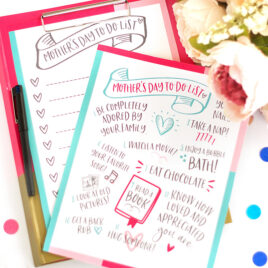 MOTHER'S DAY TO DO LIST
MOTHER'S DAY TO DO LIST
BE COMPLETELY
ADORED BY
YOUR FAMILY
TAKE A NAP!
ZZZZZ
WATCH A MOVIE!
ENJOY A BUBBLE
BATH!
LISTEN TO
YOUR FAVORITE
SONG!
EAT CHOCOLATE
LOOK AT OLD
PICTURES!
READ A
BOOK
KNOW HOW
LOVED AND
APPRECIATED
you are
GET A BACK
RUB